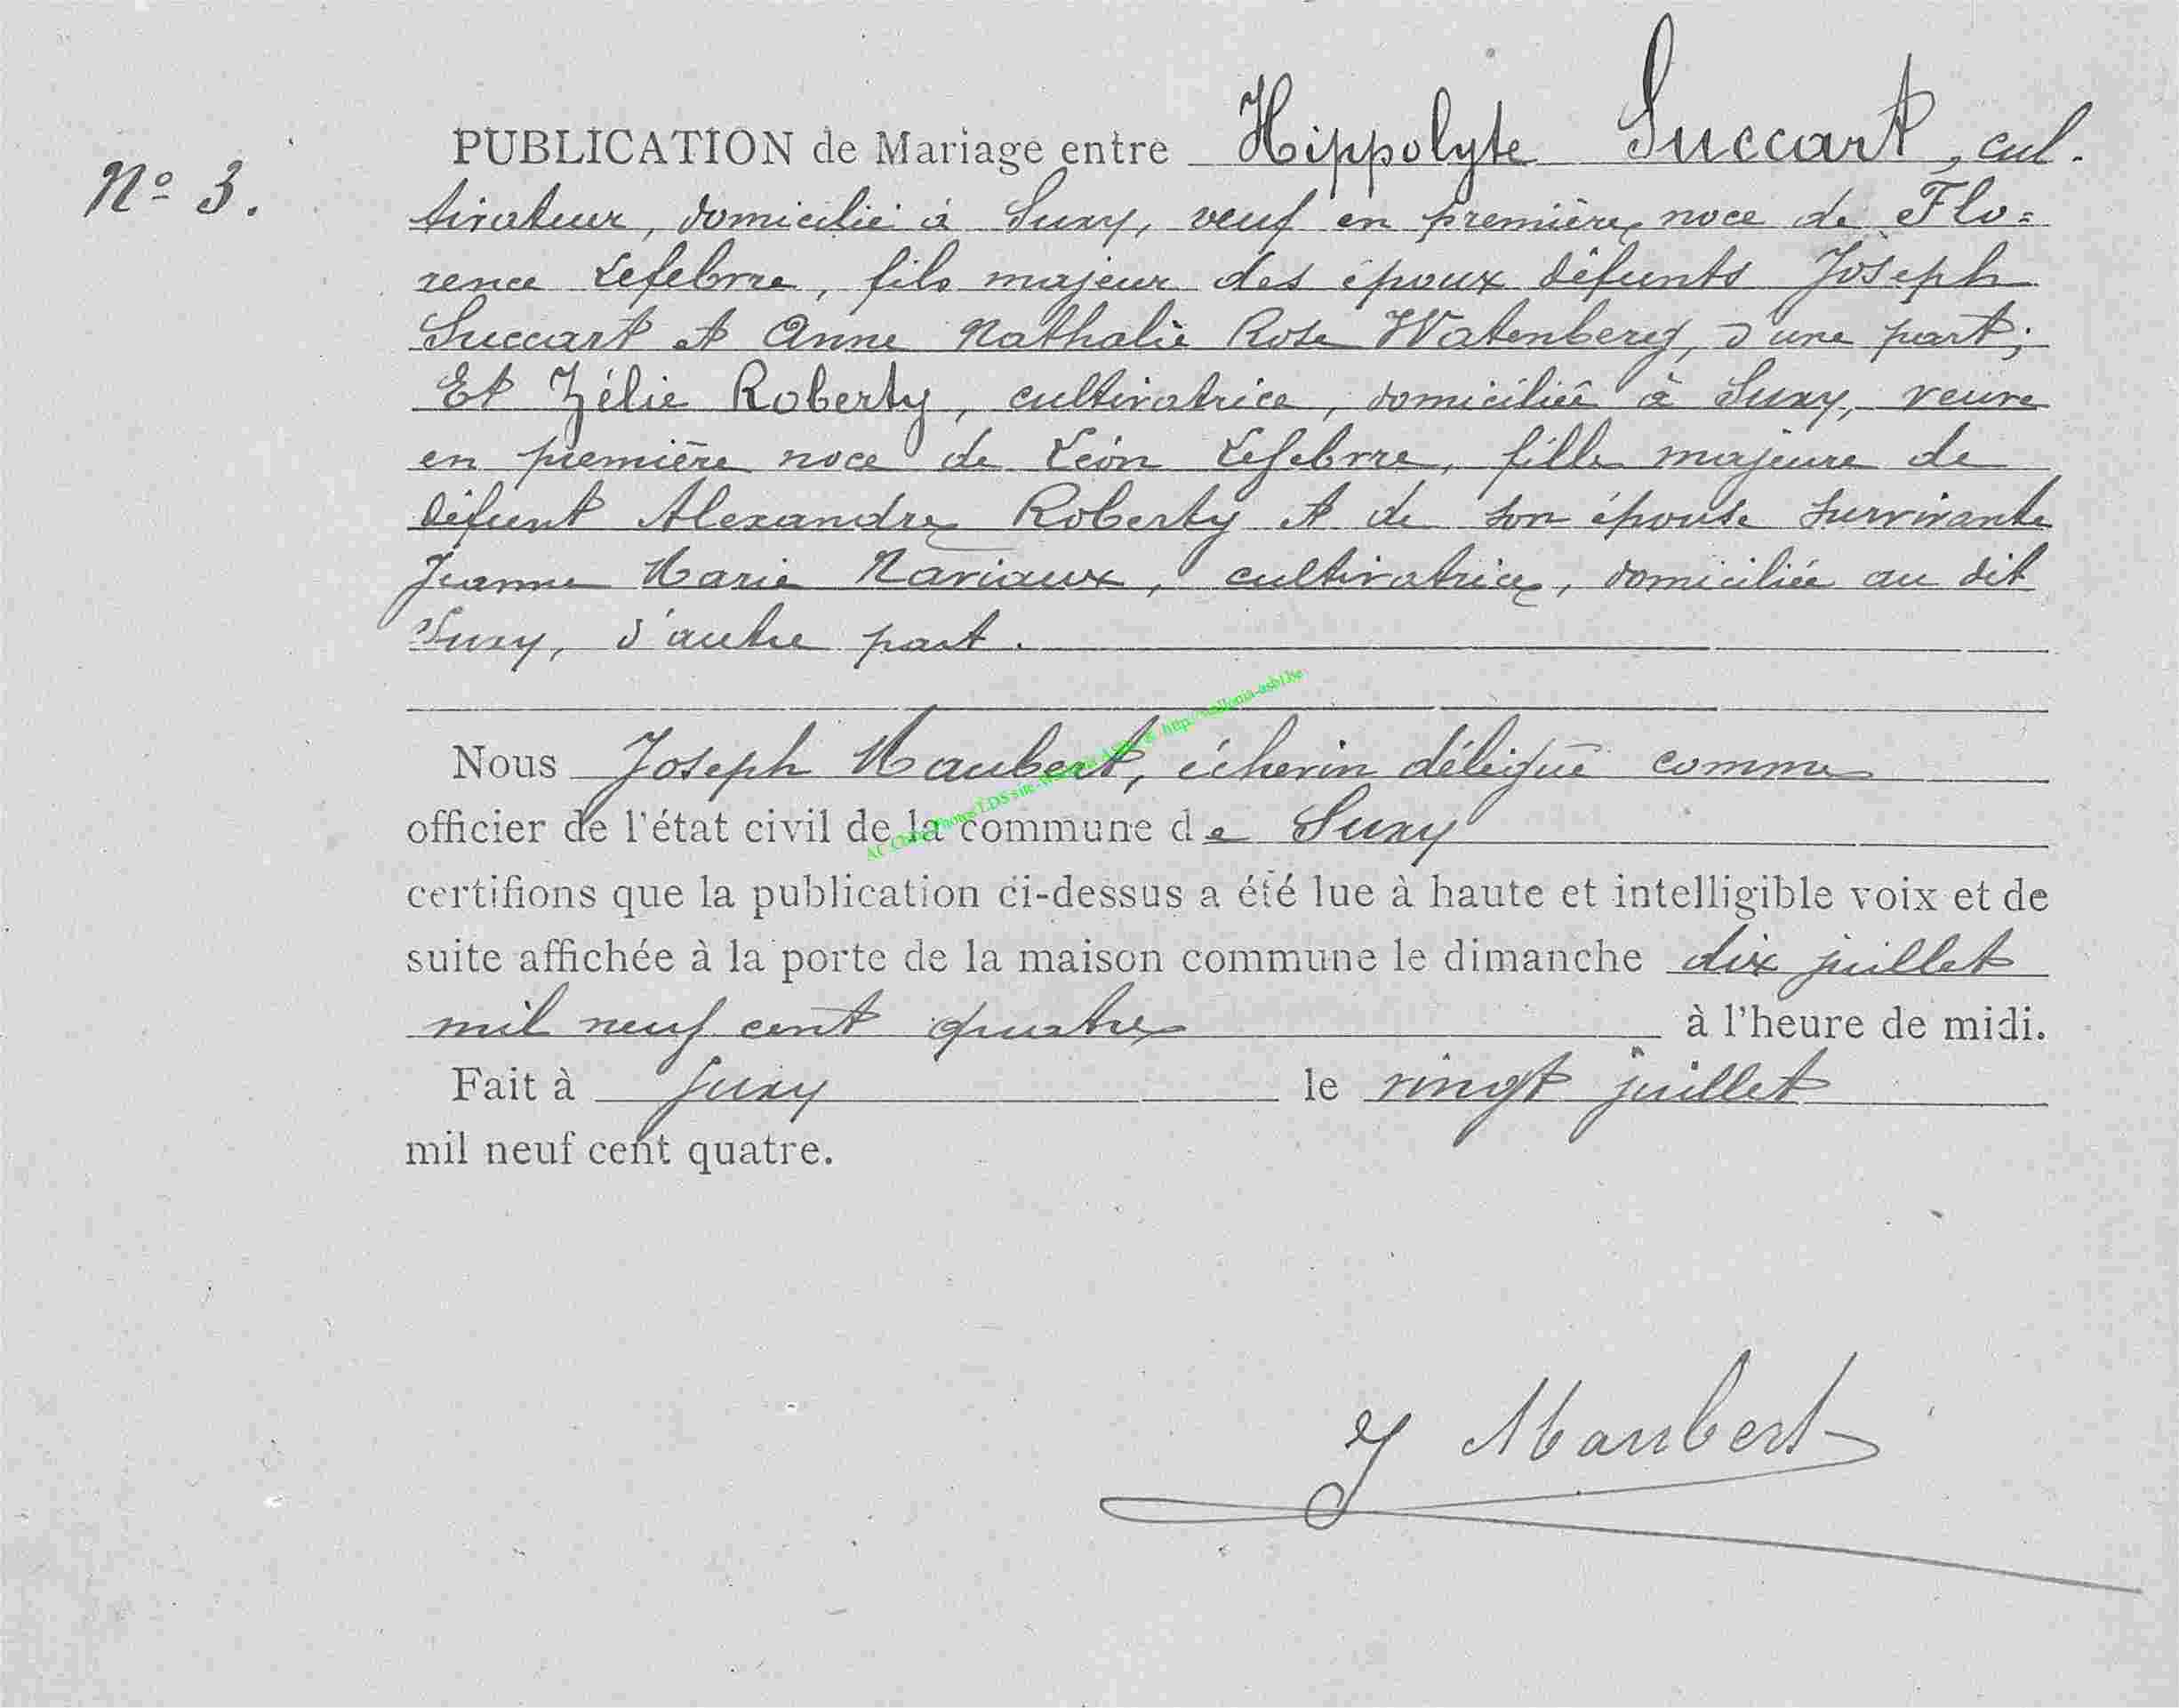 N° 3.
PUBLICATION de Mariage entre Hippolyte Succart, cul-
tivateur, domicilié à Suxy, veuf en première noce de Flo=
rence Lefebvre, fils majeur des époux défunts Joseph
Succart et Anne Nathalie Rose Watenberg, d'une part;
Et Zélie Roberty, cultivatrice, domiciliée à Suxy, veuve
en première noce de Léon Lefebvre, fille majeure de
défunt Alexandre Roberty et de son épouse survivante
Jeanne Marie Naviaux, cultivatrice, domiciliée au dit
Suxy, d'autre part.
Nous Joseph Maubert, échevin délégué comme
officier de l'état civil de la commune de Suxy
certifions que la publication ci-dessus a été lue à haute et intelligible voix et de
suite affichée à la porte de la maison commune le dimanche dix juillet
mil neuf cent quatre à l'heure de midi.
Fait à Suxy le vingt juillet
mil neuf cent quatre.
J Maubert